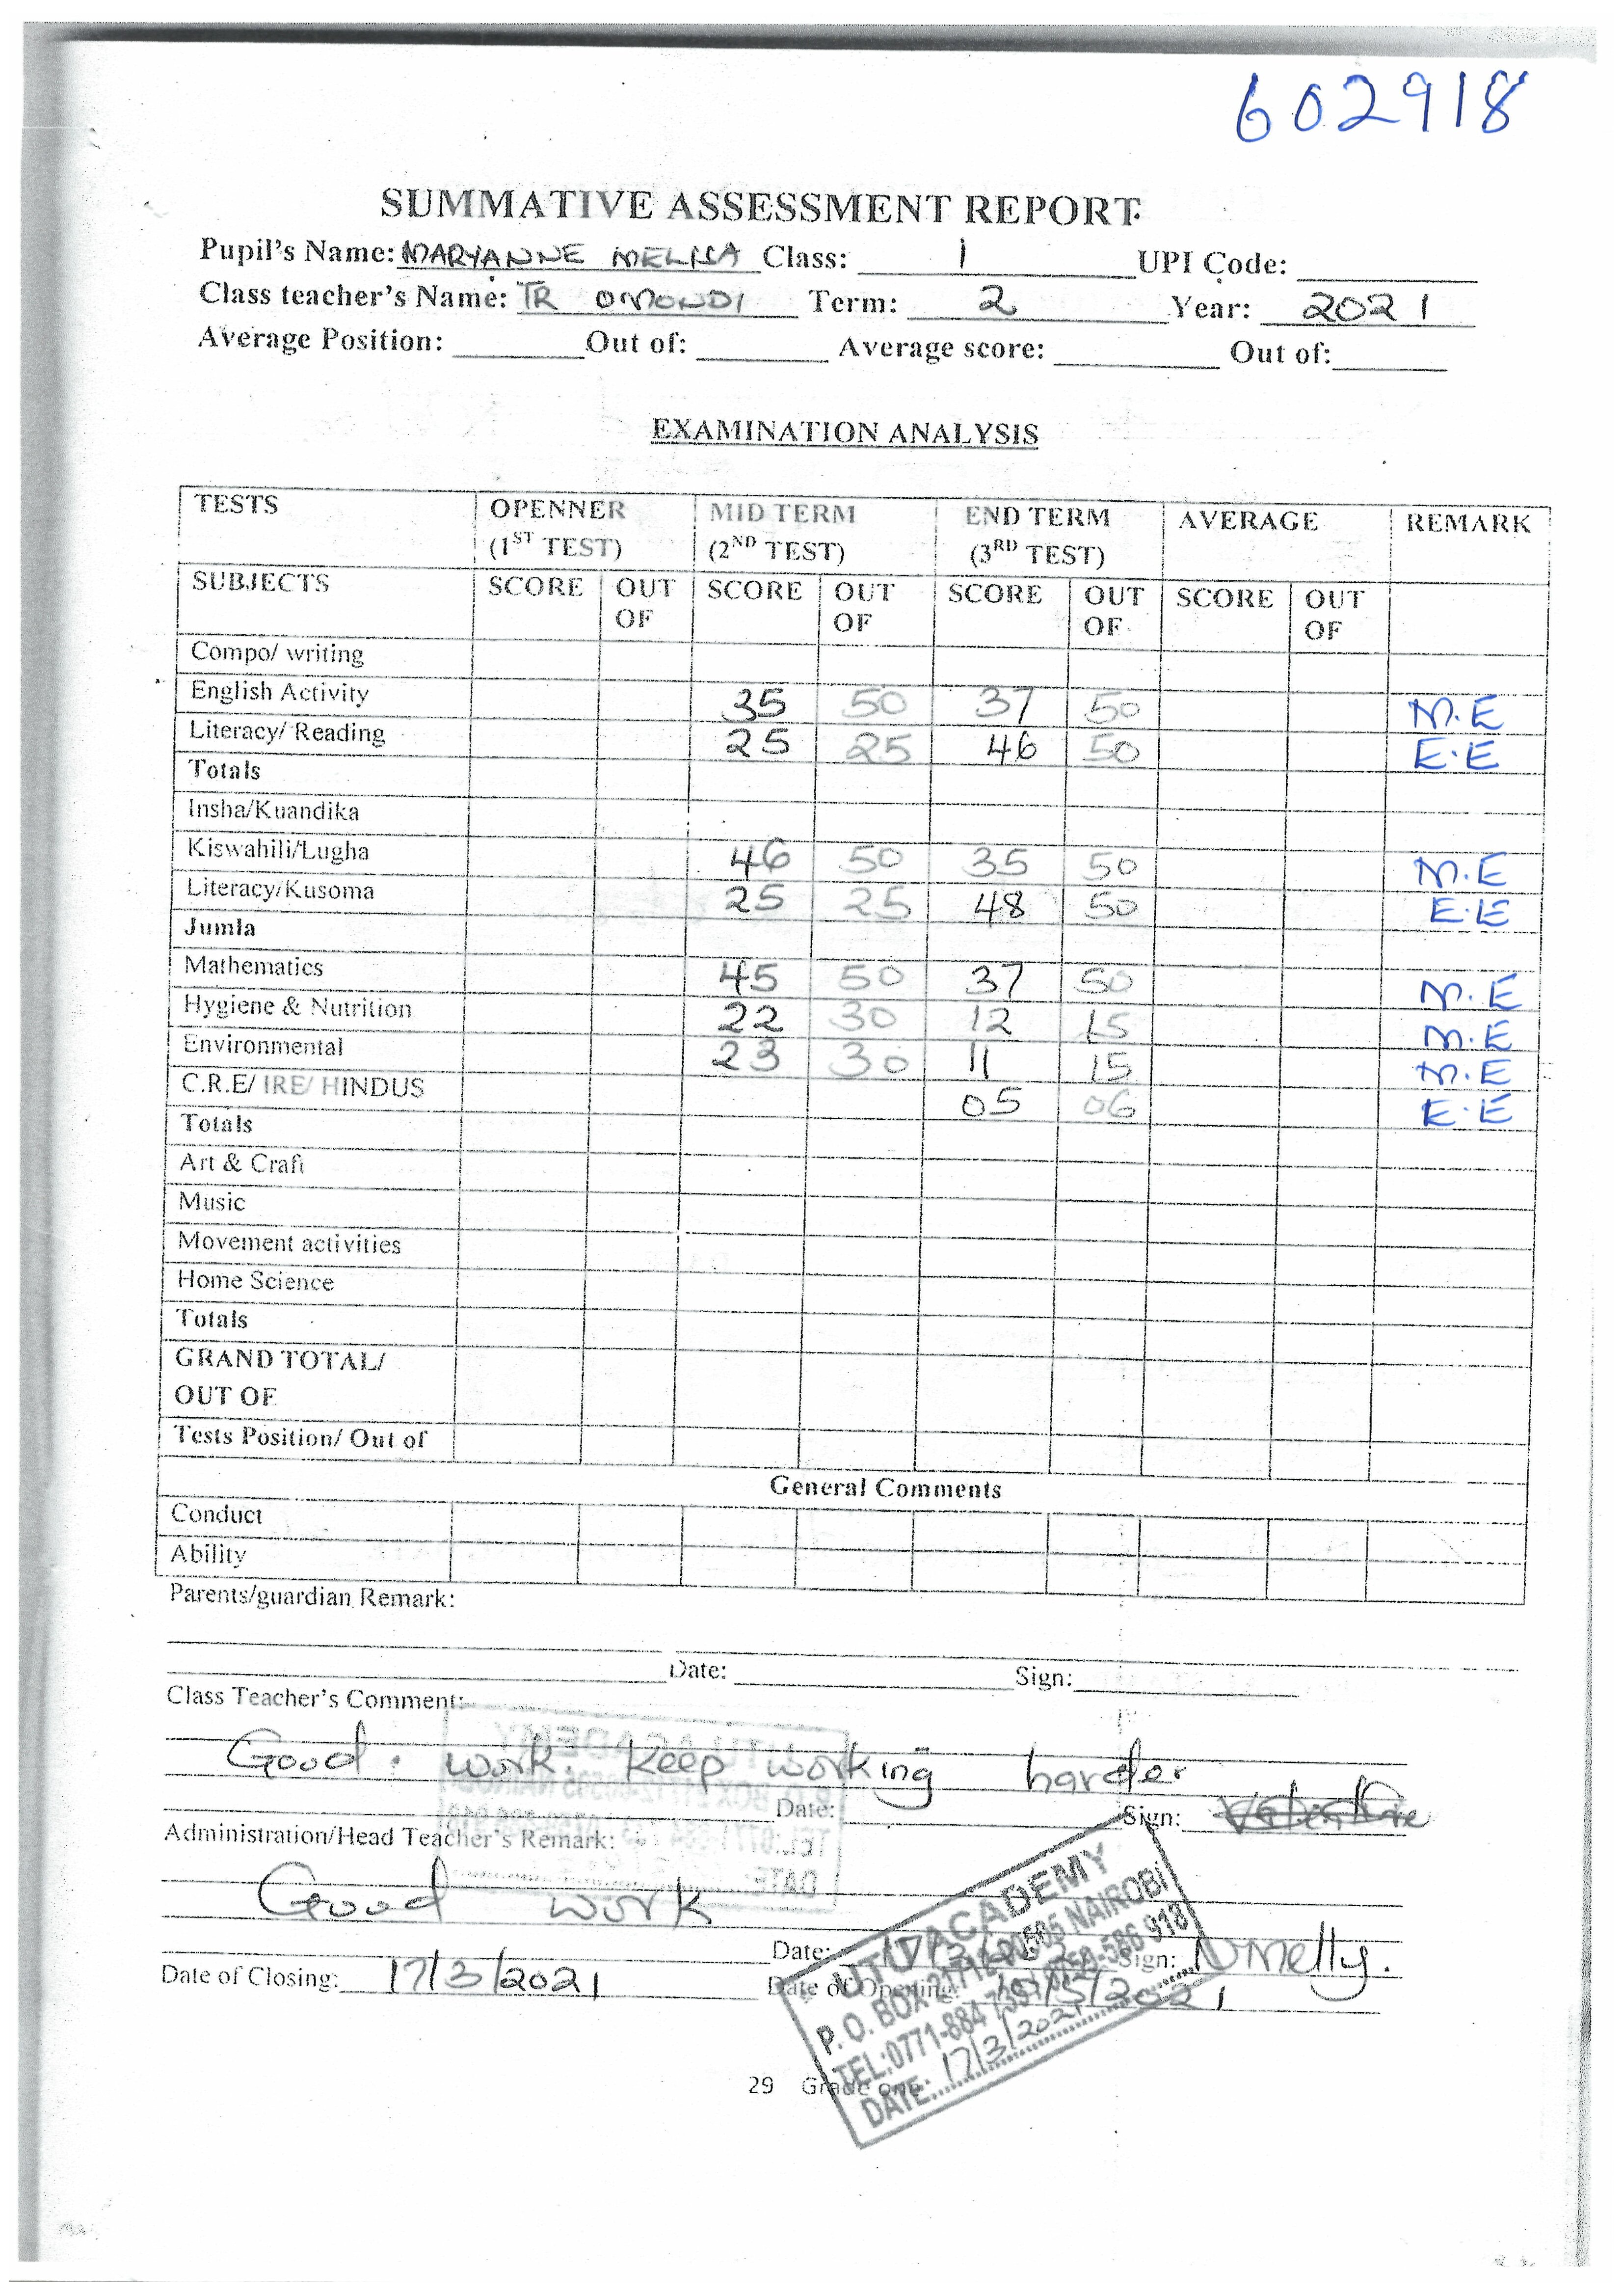 602918
SUMMATIVE ASSESSMENT REPORT
Pupil's Name: MARYANNE Class: 1 UPI Code:
Class teacher's Name: TR OMONDI Term: 2 Year: 2021
Average Position: Out of: Average score: Out of:
EXAMINATION ANALYSIS
TESTS OPENNER (1ST TEST) MID TERM (2ND TEST) END TERM (3RD TEST) AVERAGE REMARK
SUBJECTS SCORE OUT OF SCORE OUT OF SCORE OUT OF SCORE OUT OF
Compo/ writing
English Activity 35 50 37 50 M.E
Literacy/ Reading 25 25 46 50 E.E
Totals
Insha/Kuandika
Kiswahili/Lugha 46 50 35 50 M.E
Literacy/Kusoma 25 25 48 50 E.E
Jumla
Mathematics 45 50 37 50 M.E
Hygiene & Nutrition 22 30 12 15 M.E
Environmental 23 30 11 15 M.E
C.R.E/ IRE/ HINDUS 05 06 E.E
Totals
Art & Craft
Music
Movement activities
Home Science
Totals
GRAND TOTAL/
OUT OF
Tests Position/ Out of
General Comments
Conduct
Ability
Parents/guardian Remark:
Date: Sign:
Class Teacher's Comment:
Good work. Keep working harder
Date: Sign:
Administration/Head Teacher's Remark:
Good work
Date: 17/3/2021 Sign:
Date of Closing: 17/3/2021 Date of Opening: 10/5/2021
ACADEMY
P. O. BOX NAIROBI
TEL:0771-884
DATE: 17/3/2021
29 Grade one